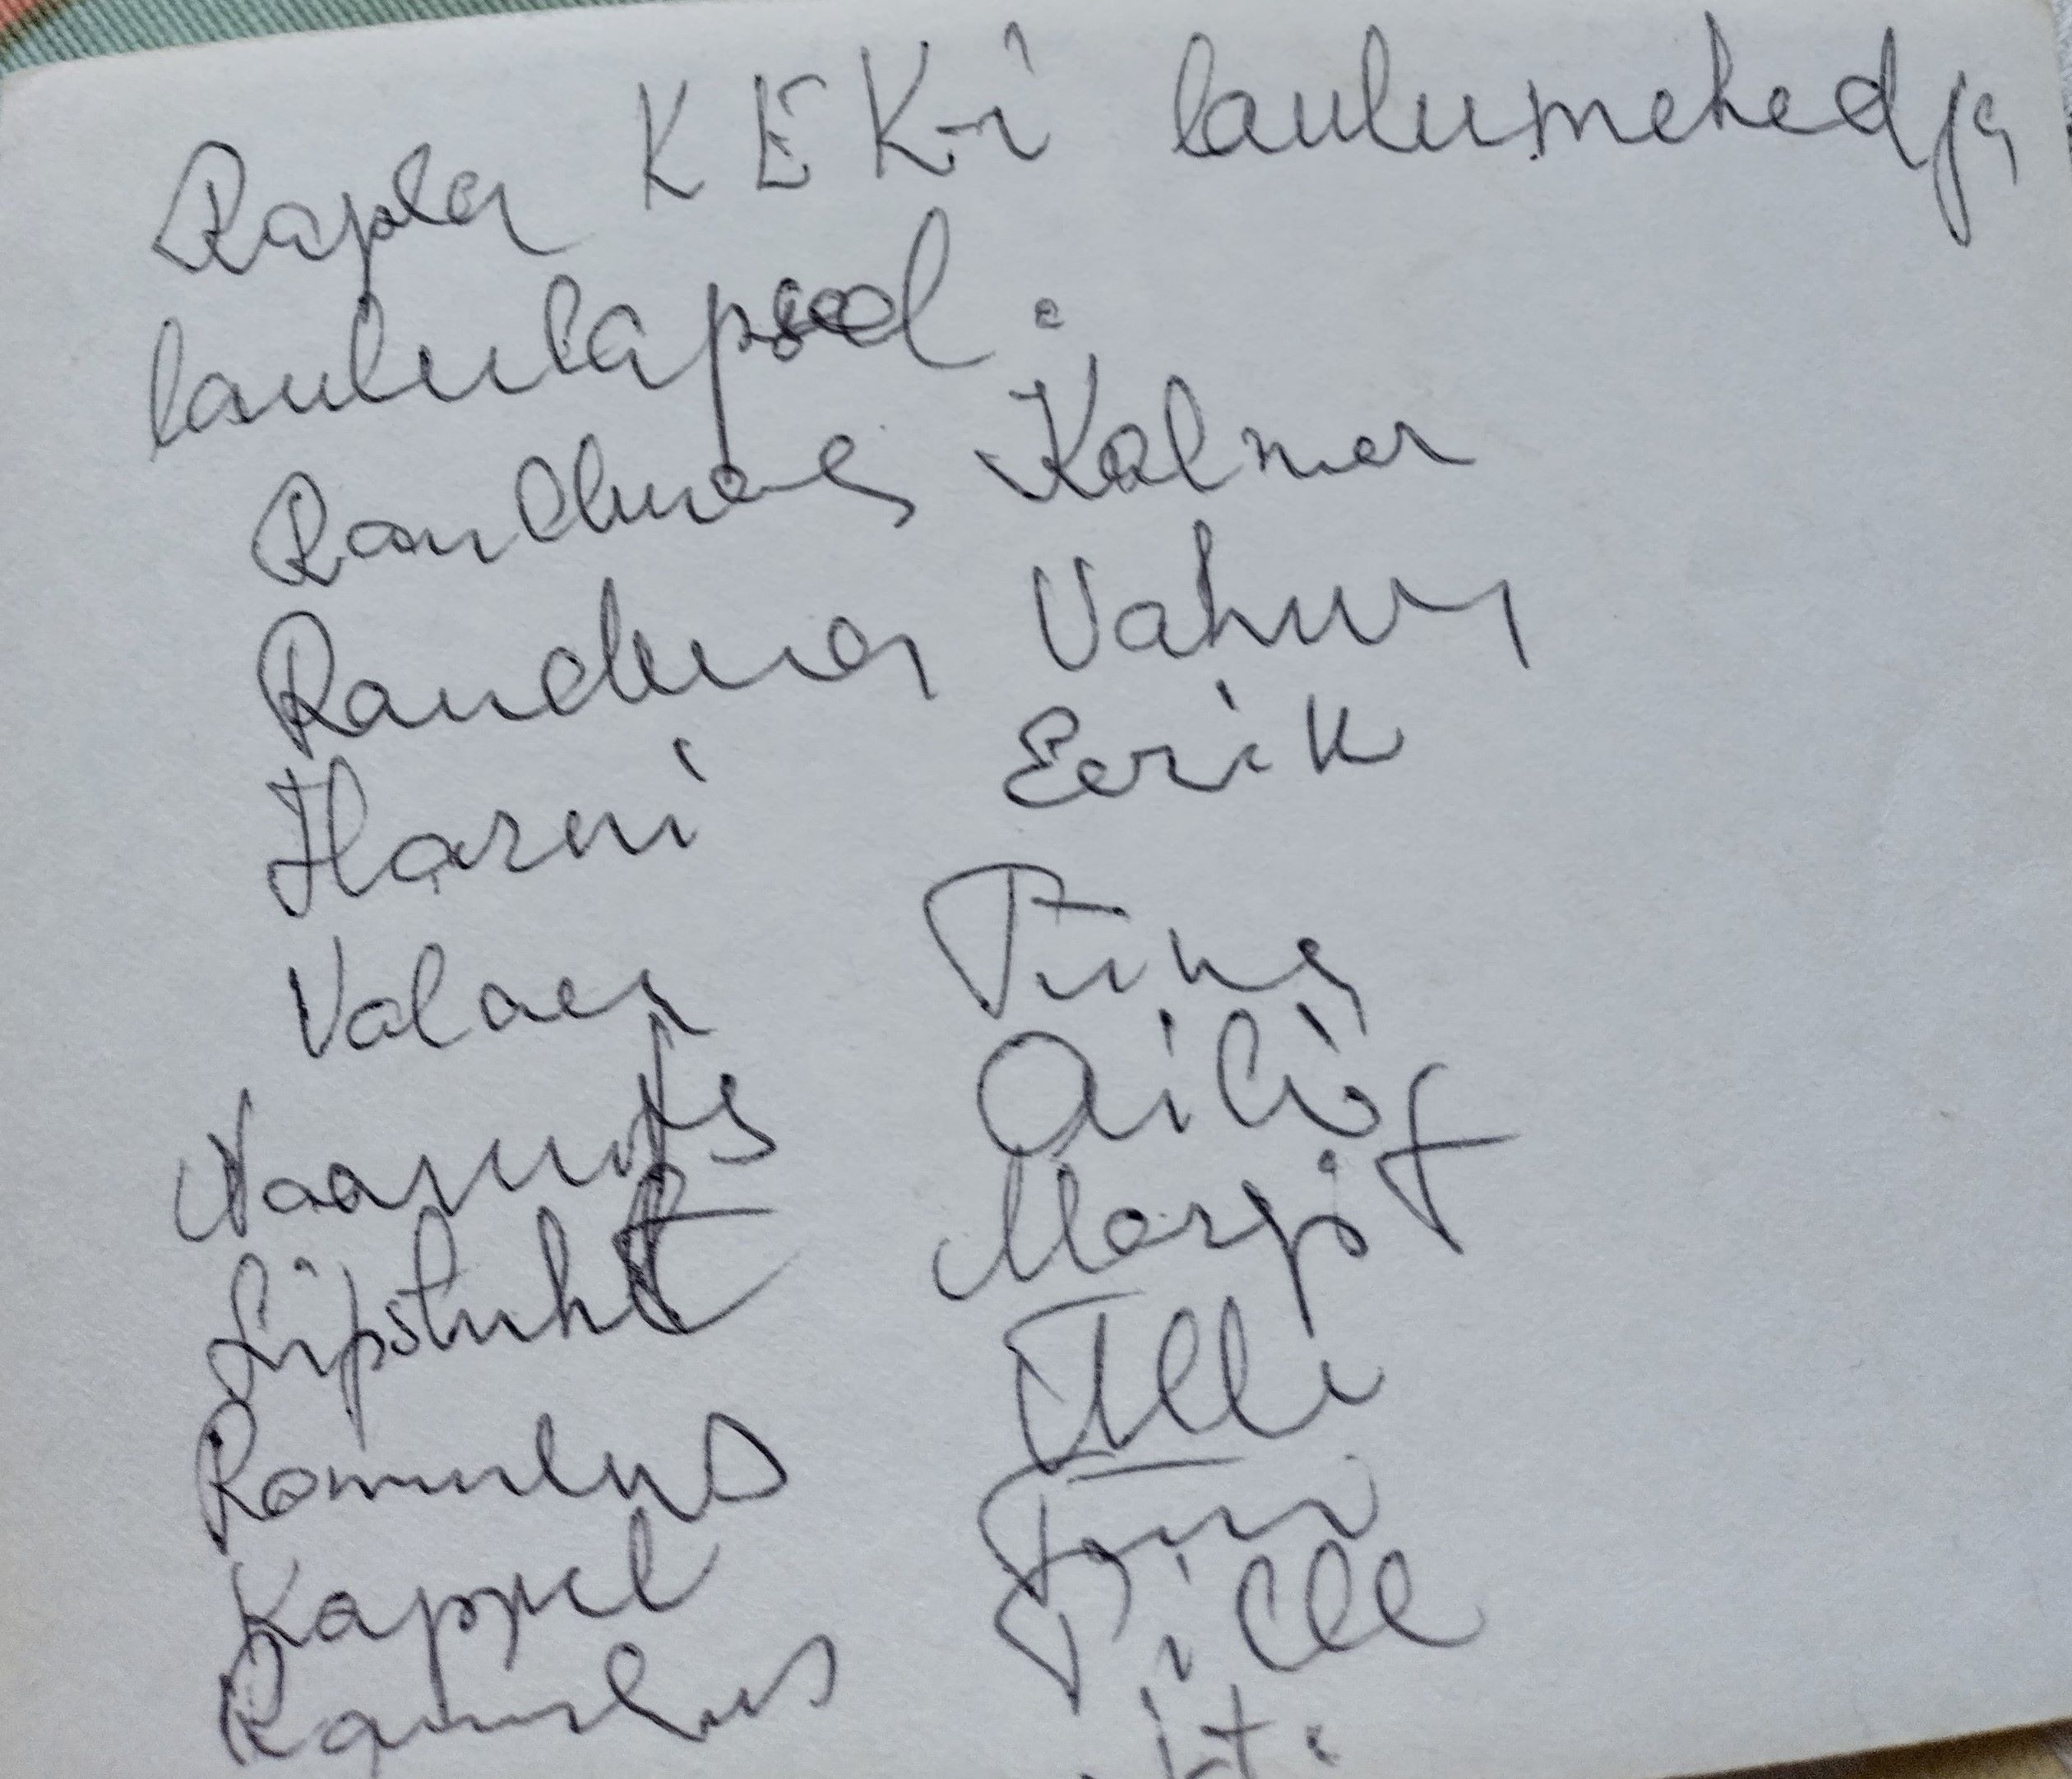 Rapla KEK-i laulumehed ja
laululapsed.
Randma Kalmer
Randma Vahur
Harni Eerik
Valaer Tiina
Naarits Aili
Lipstuht Margit
Romulus Ülli
Kappel Toni
Romulus Pille